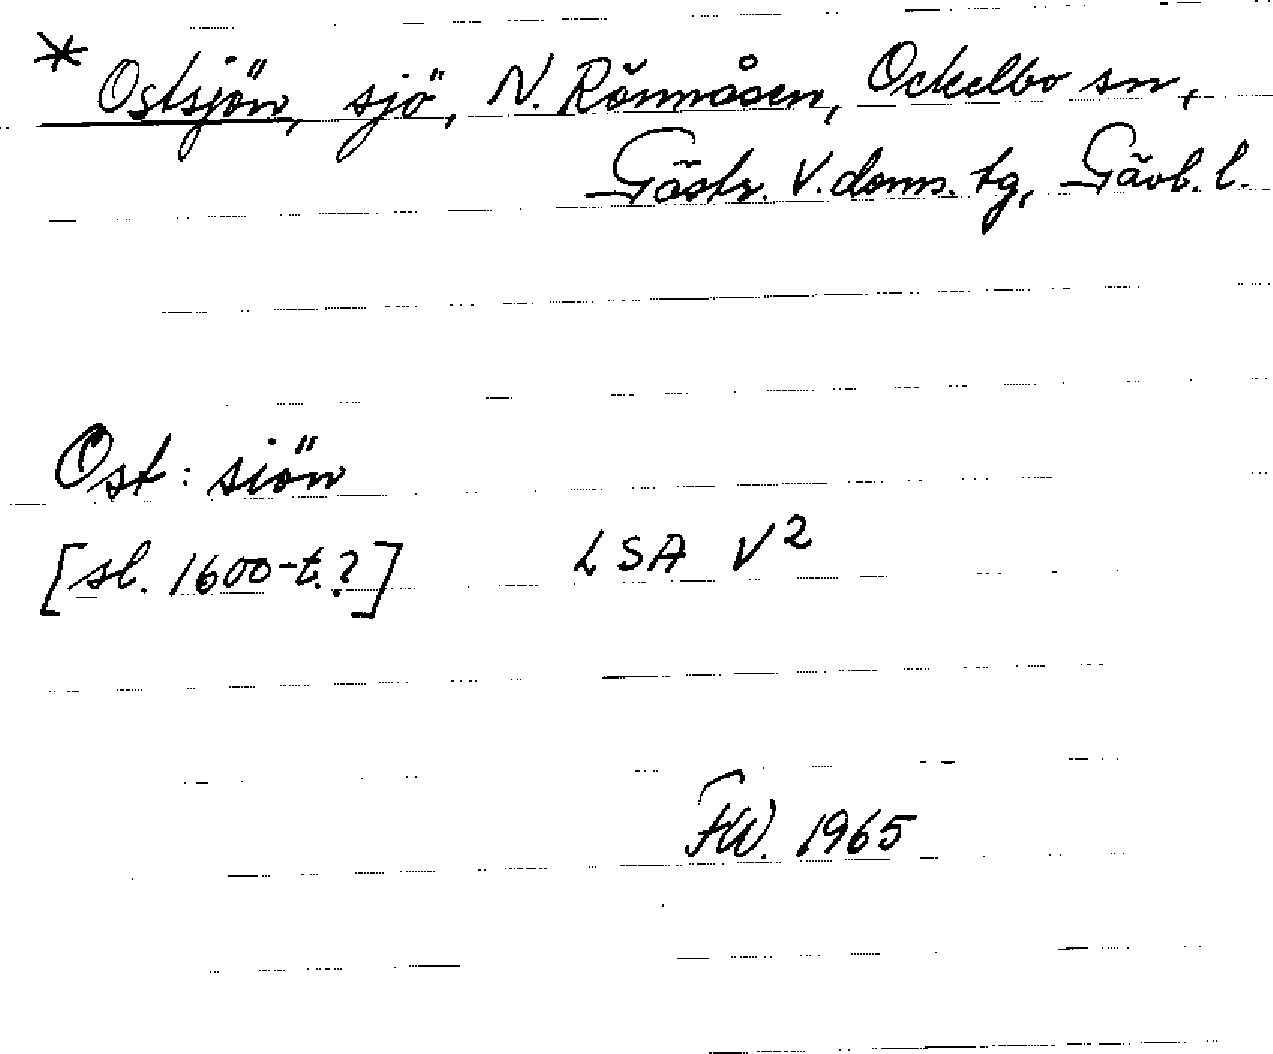 * Ostsjön, sjö, N. Rönnåsen, Ockelbo sn,
Gästr. V. doms. tg, Gävl. l.
Ost: siön
[sl. 1600-t.?] LSA V2
FW. 1965